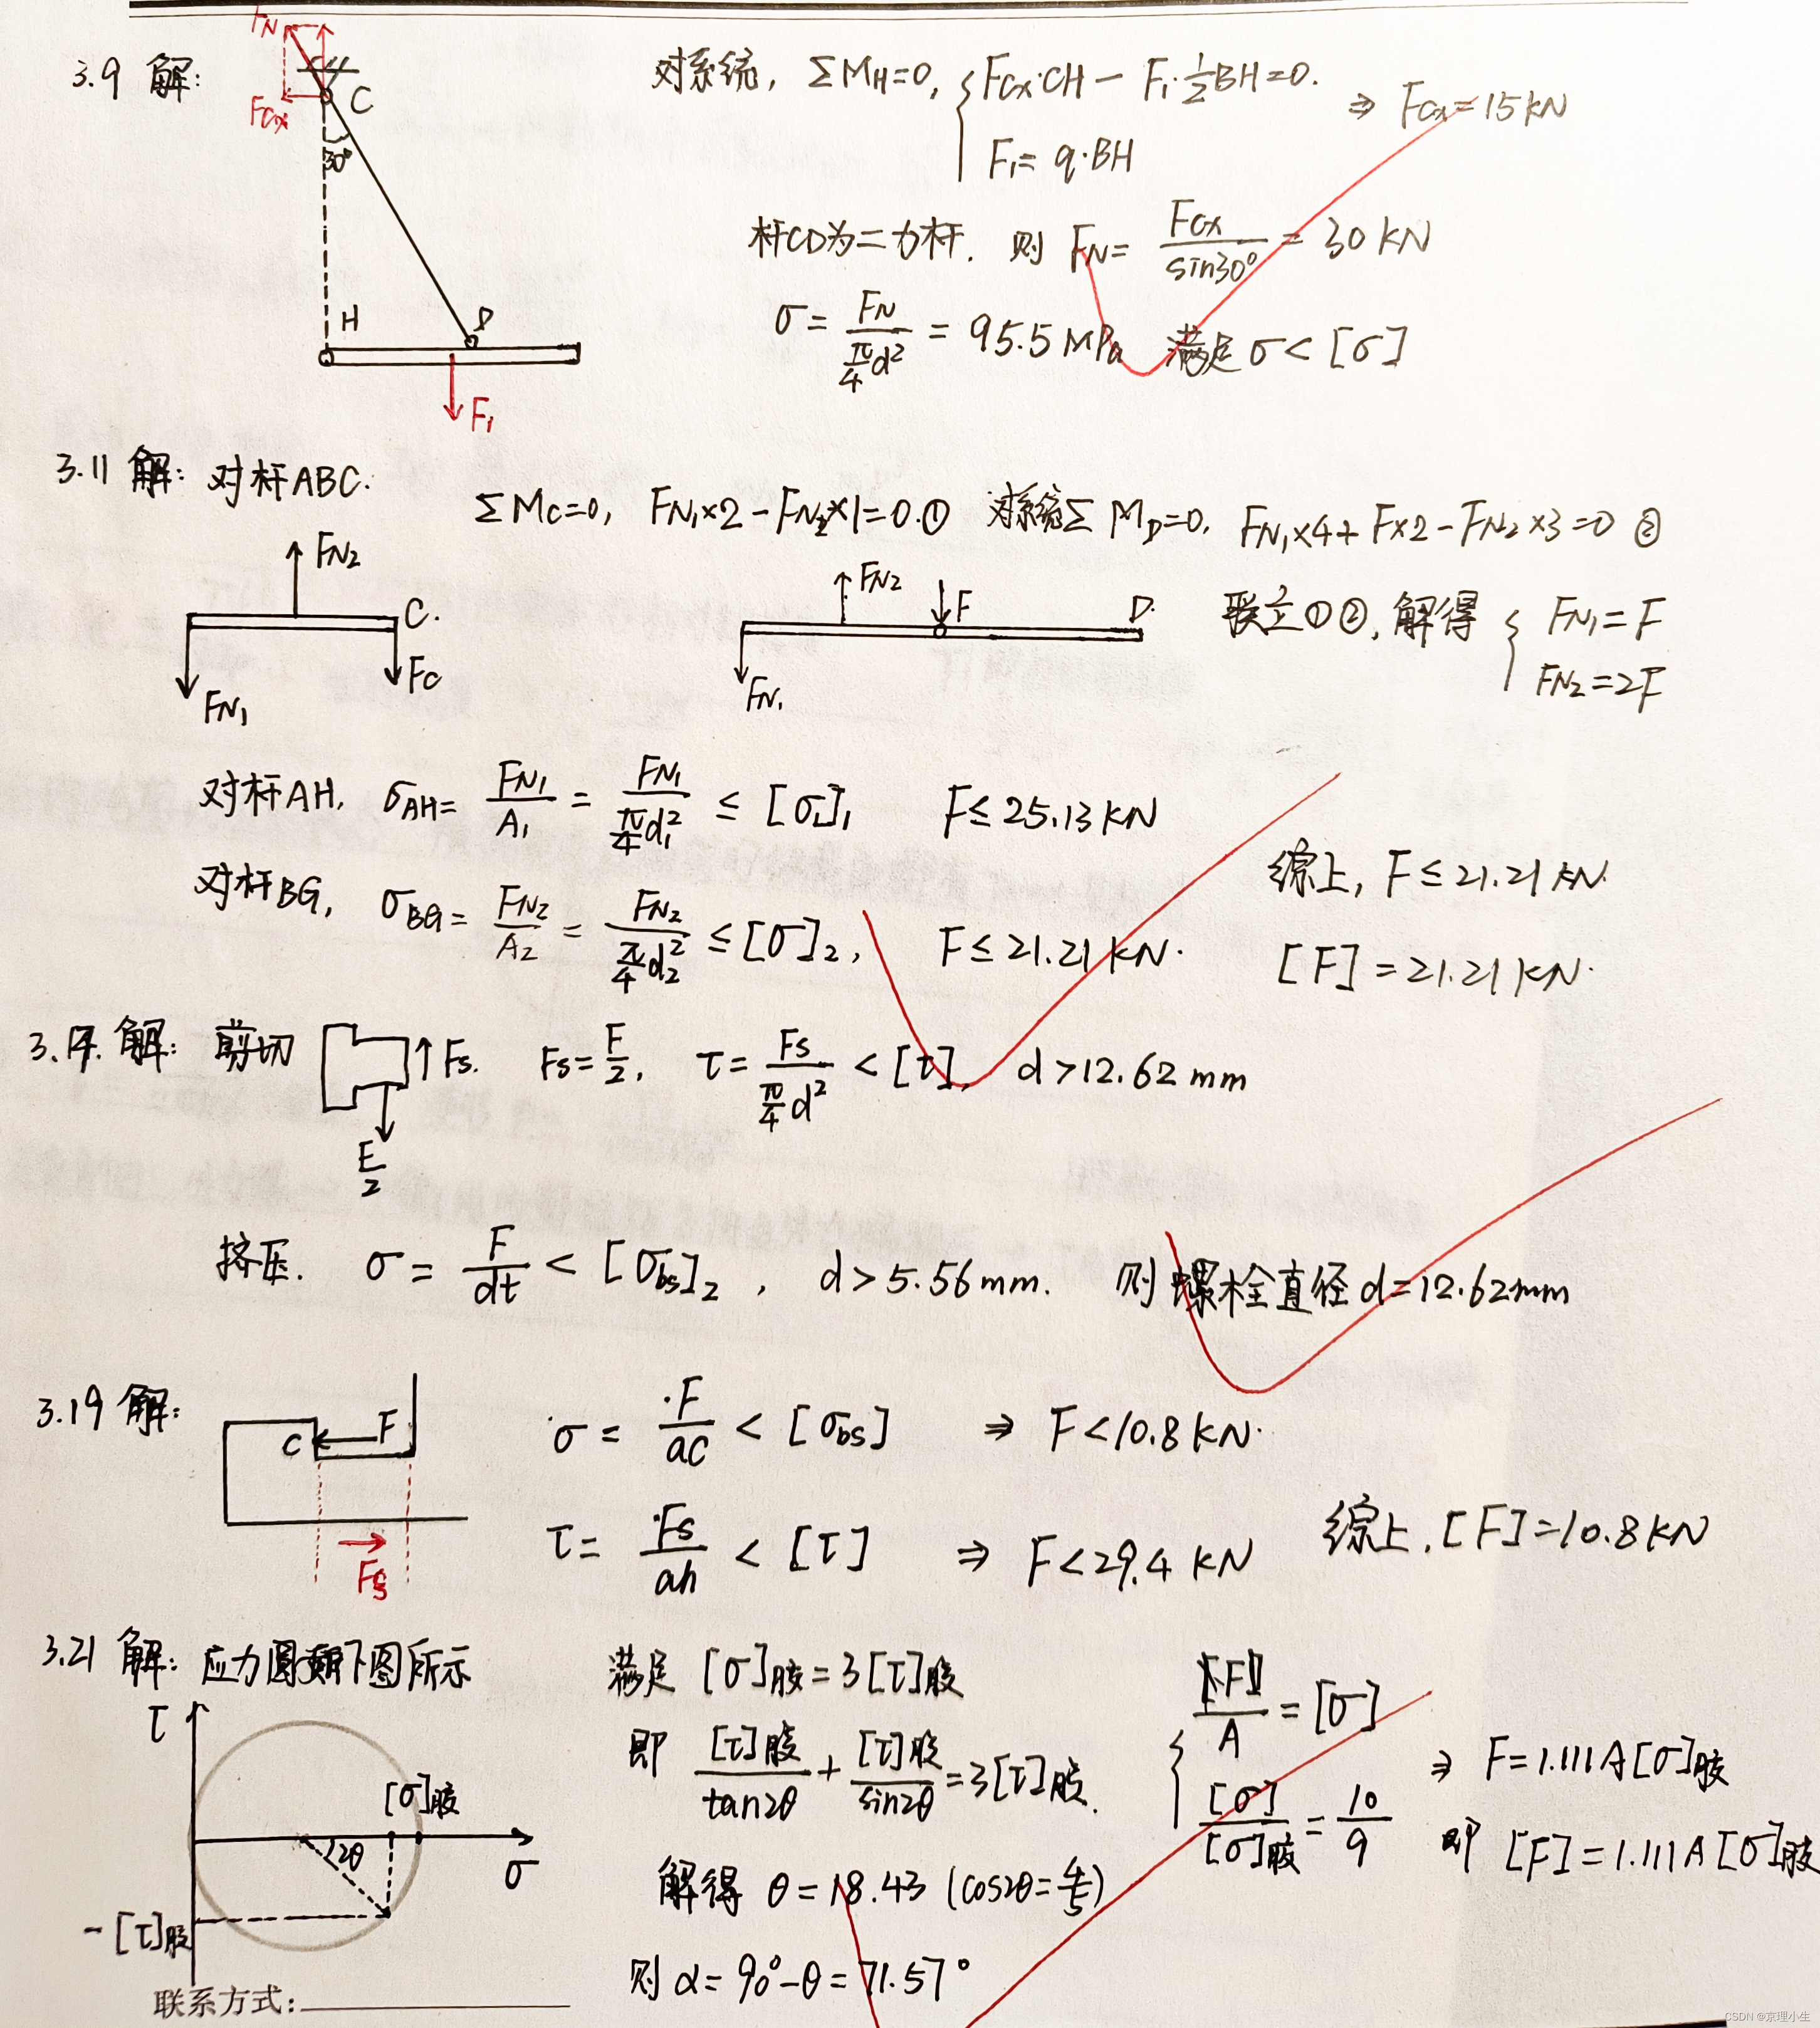 3.9 解:
FN
FCx
C
30°
H
D
F₁
对系统, ΣM_H=0, { FCx·CH − F₁·½BH=0.
F₁= q·BH
⇒ FCx=15kN
杆CD为二力杆. 则 FN= FCx/sin30° = 30 kN
σ= FN/(π/4 d²) = 95.5 MPa 满足 σ< [σ]
3.11 解: 对杆ABC.
ΣMc=0, FN₁×2 − FN₂×1=0.① 对系统Σ M_D=0, FN₁×4+ F×2 − FN₂×3=0 ②
FN₂
C.
FN₁
Fc
FN₂
F
D.
FN₁
联立①②, 解得 { FN₁=F
FN₂=2F
对杆AH, σAH= FN₁/A₁ = FN₁/(π/4 d₁²) ≤ [σ]₁ F≤ 25.13 kN
对杆BG, σBG= FN₂/A₂ = FN₂/(π/4 d₂²) ≤ [σ]₂, F≤ 21.21 kN.
综上, F≤ 21.21 kN.
[F] =21.21 kN.
解: 剪切
Fs.
F/2
Fs= F/2, τ= Fs/(π/4 d²) < [τ], d >12.62 mm
挤压. σ= F/dt < [σbs]₂ , d > 5.56 mm. 则 螺栓直径 d=12.62mm
3.19 解:
C
F
Fs
σ= F/ac < [σbs] ⇒ F<10.8 kN.
τ= Fs/ah < [τ] ⇒ F<29.4 kN
综上, [F]=10.8 kN
3.21 解: 应力圆如下图所示
τ
[σ]胶
2θ
σ
−[τ]胶
满足 [σ]胶=3[τ]胶
即 [τ]胶/tan2θ + [τ]胶/sin2θ =3[τ]胶.
解得 θ=18.43 (cos2θ=4/5)
则 α= 90°−θ= 71.57°
{ [F]/A = [σ]
[σ]/[σ]胶 = 10/9
⇒ F=1.111A[σ]胶
即 [F]=1.111A[σ]胶
联系方式:
CSDN @京理小生